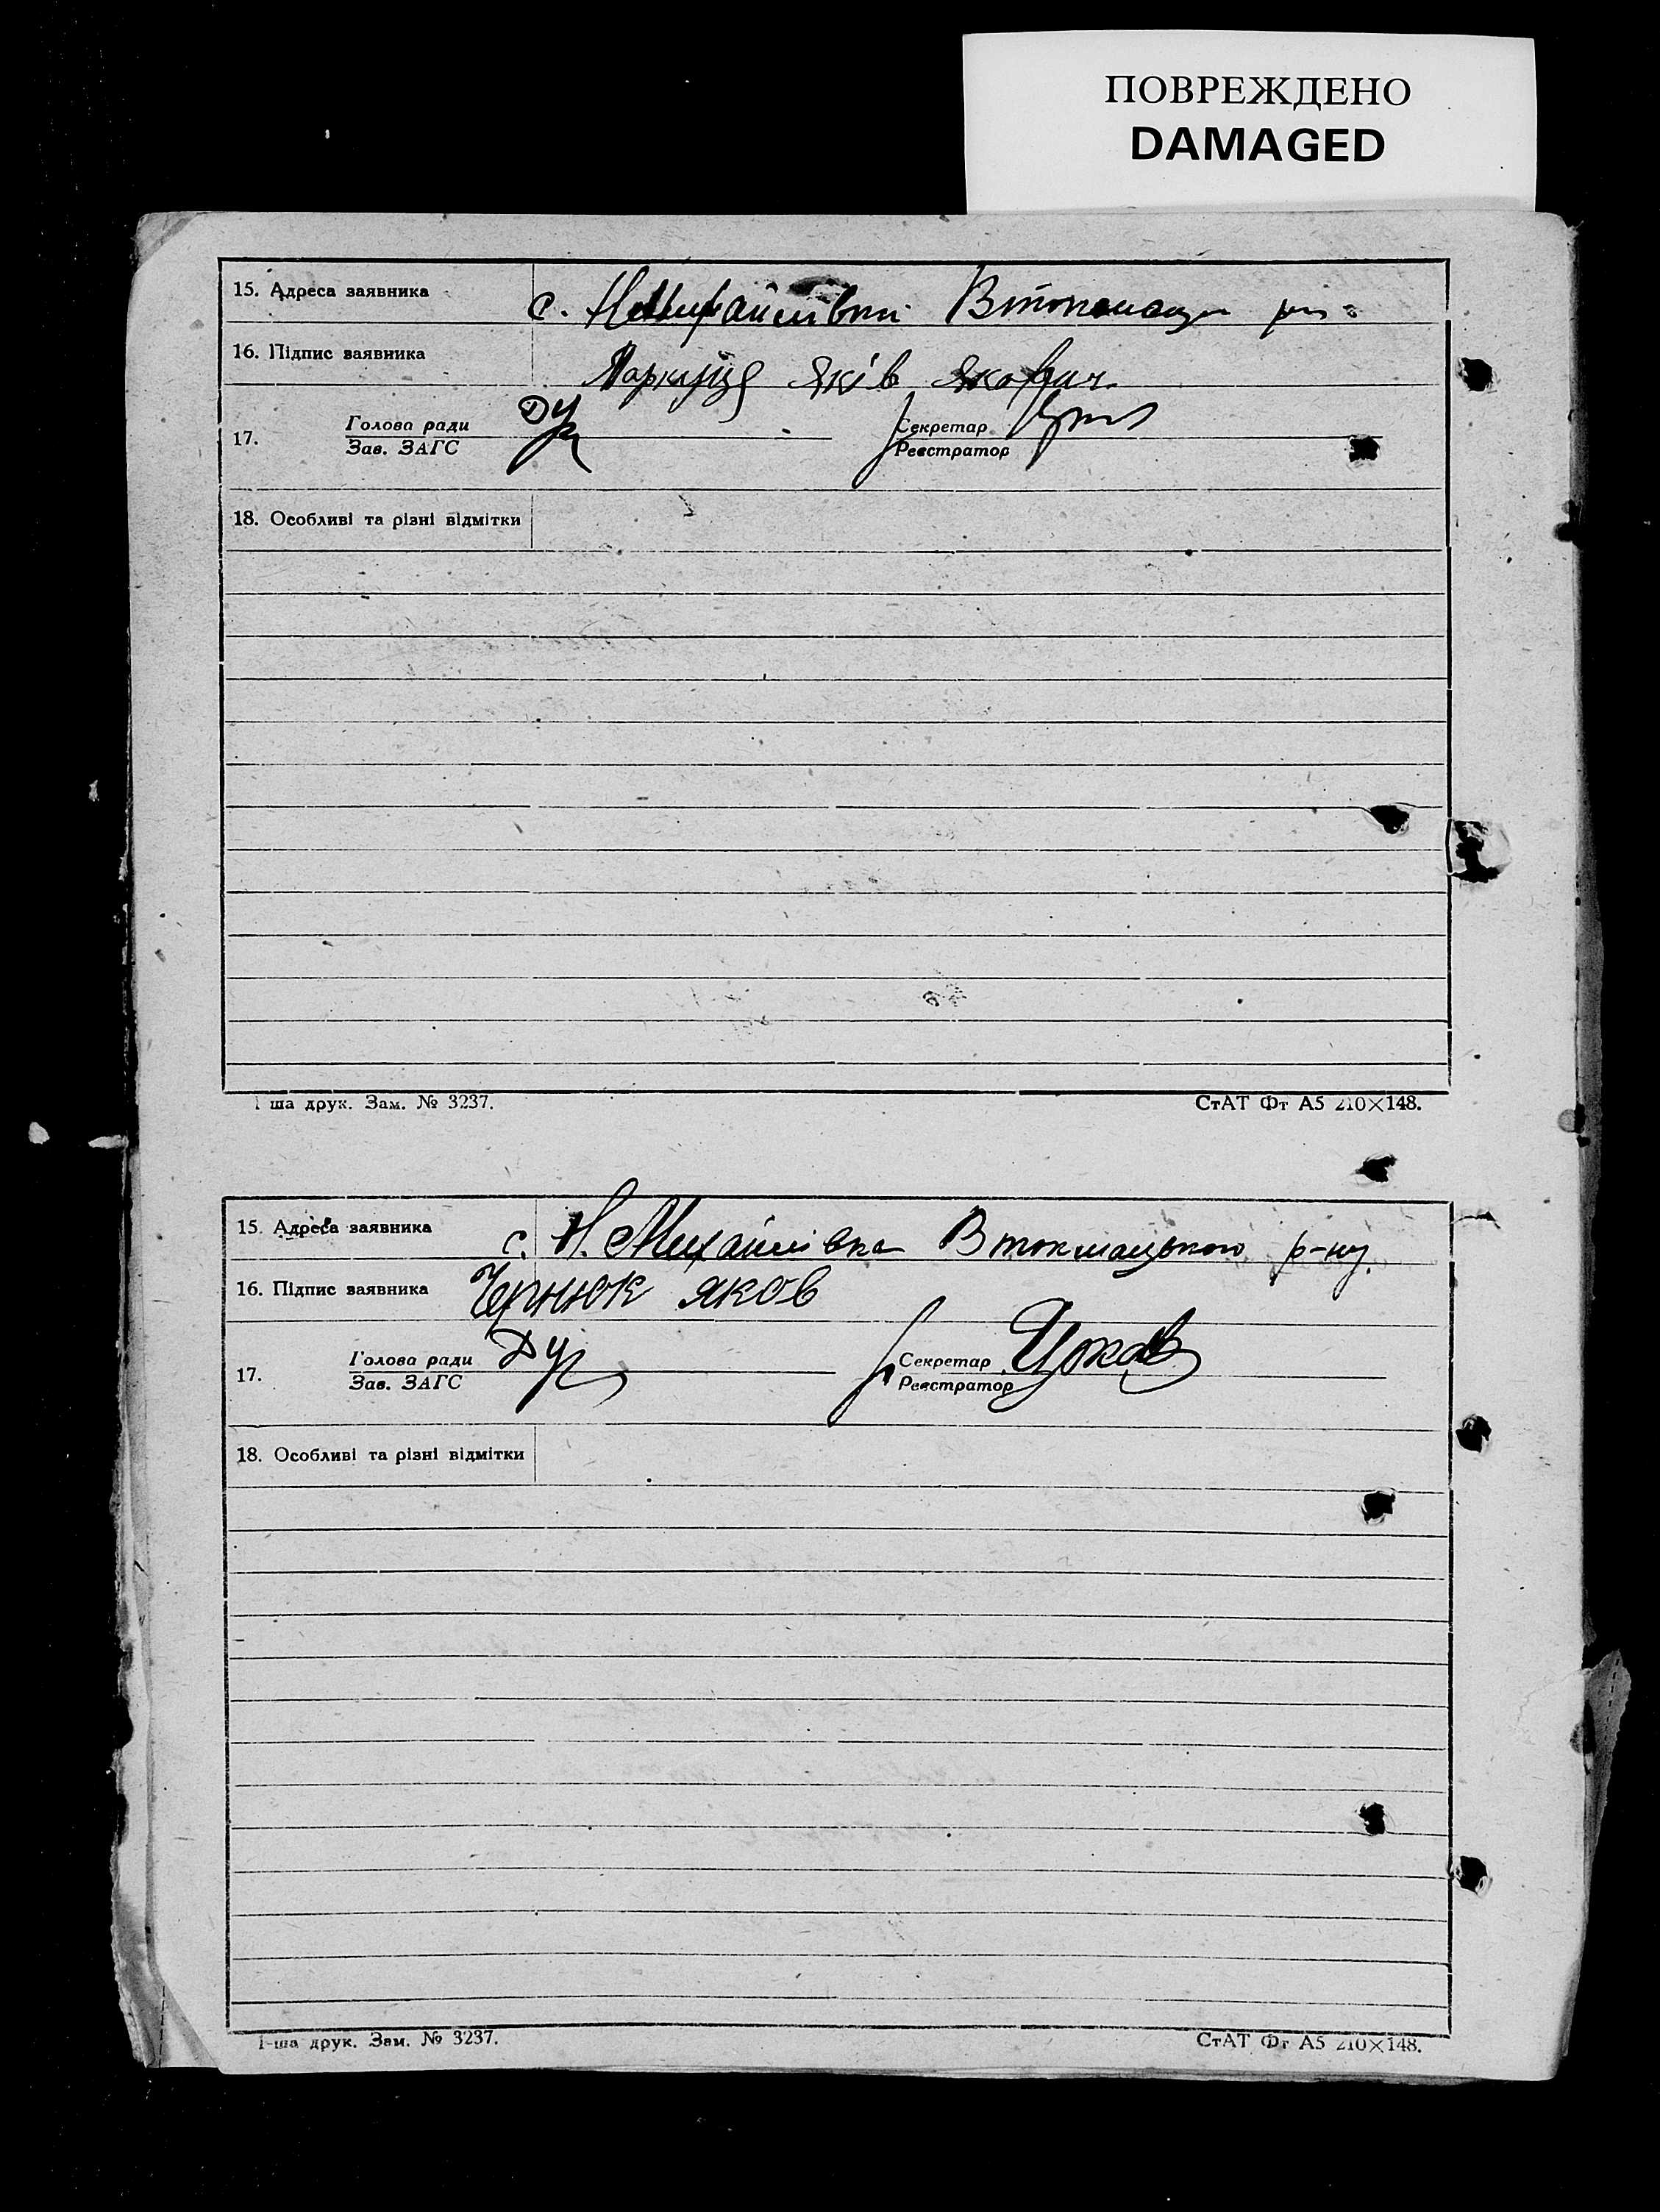 ПОВРЕЖДЕНО
DAMAGED
15. Адреса заявника с. Н Михайлівки
16. Підпис заявника Яків Якович
17. Голова ради Секретар
Зав. ЗАГС Реєстратор
18. Особливі та різні відмітки
ша друк. Зам. № 3237. СтАТ Фт А5 210×148.
15. Адреса заявника с. Н. Михайлівка В токмацького р-ну.
16. Підпис заявника Чернюк яков
17. Голова ради Секретар
Зав. ЗАГС Реєстратор
18. Особливі та різні відмітки
1-ша друк. Зам. № 3237. СтАТ Фт А5 210×148.